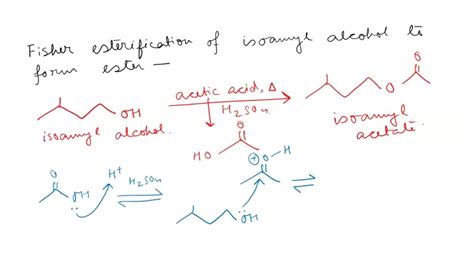 Fisher esterification of isoamyl alcohol to
form ester —
OH
acetic acid, Δ
H₂SO₄
O
O
isoamyl alcohol.
isoamyl
acetate.
O
HO
⊕O H
O
OH
H⁺
H₂SO₄
OH